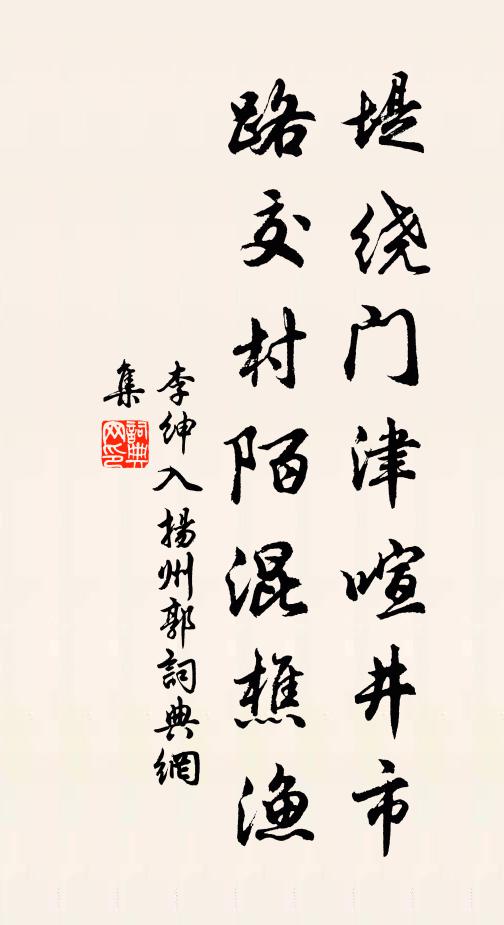 堤绕门津喧井市
路交村陌混樵渔
李绅入扬州郭詞典網
集
詞典
网印